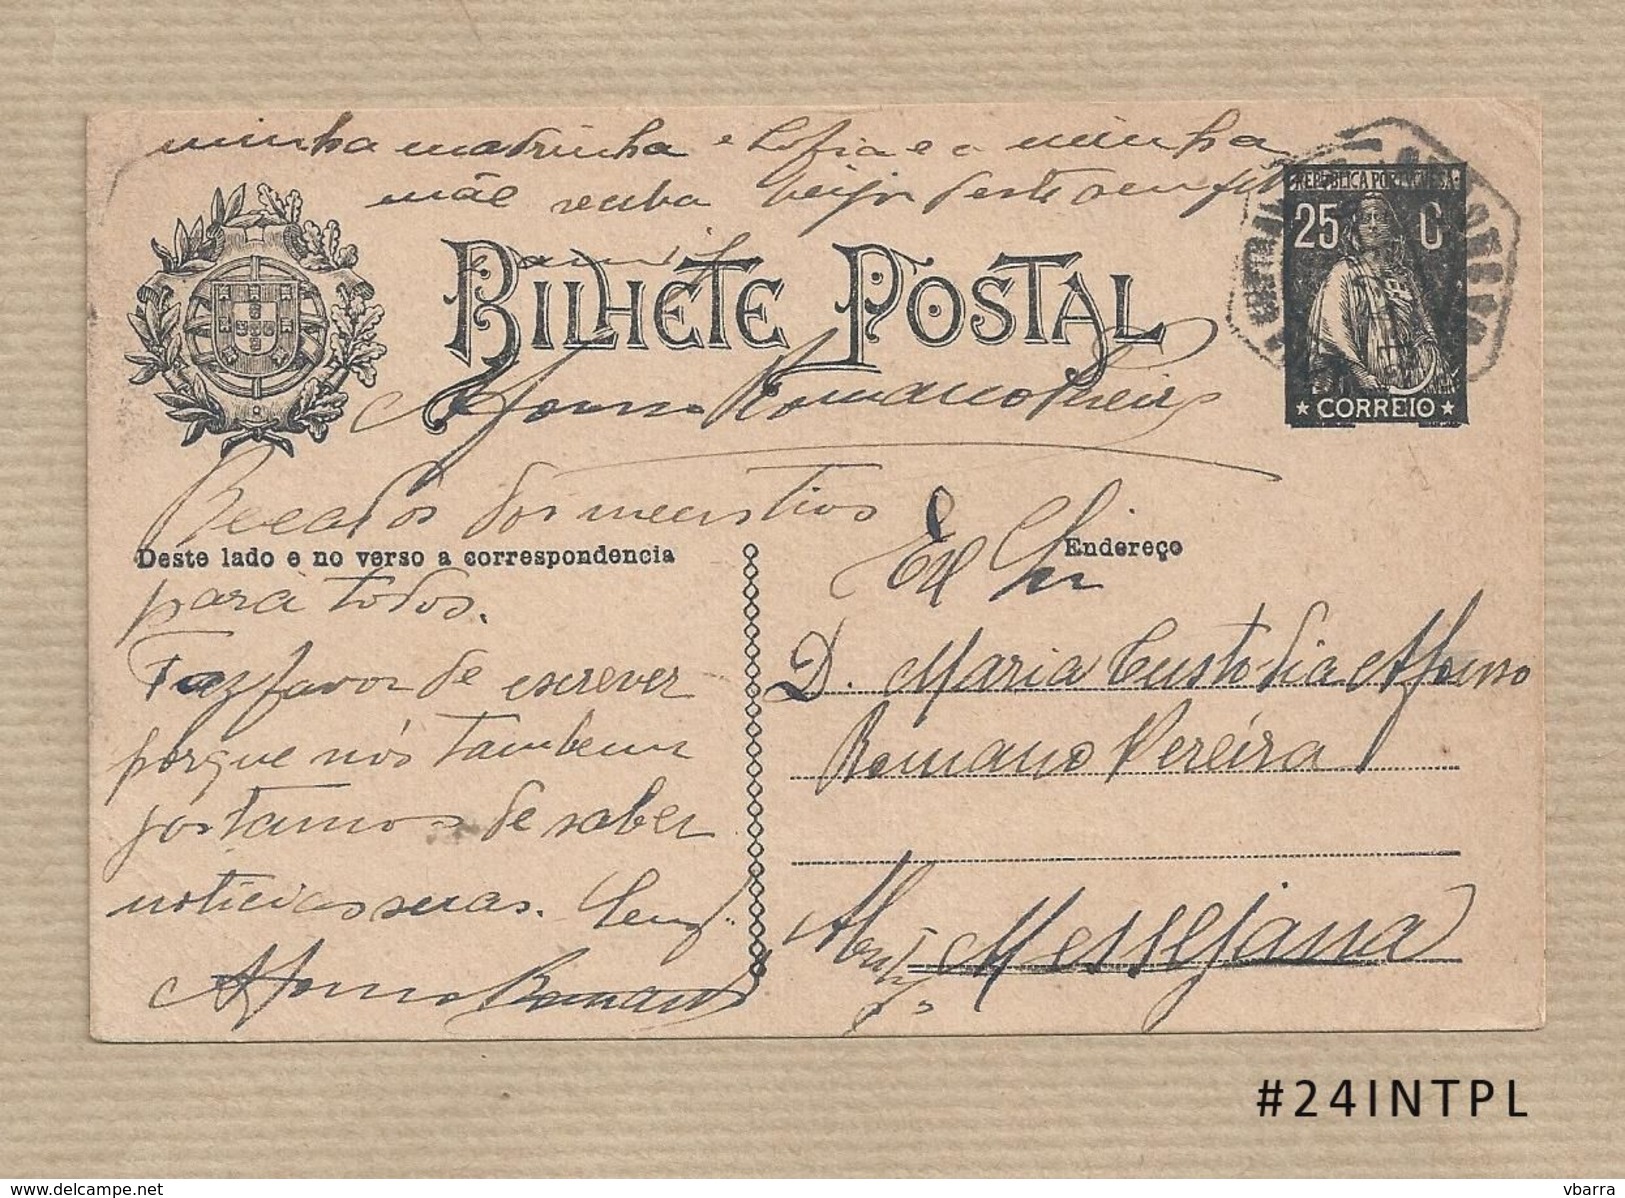 minha madrinha e Sofia e a minha
mãe receba beijos deste seu
REPUBLICA PORTUGUESA
25 C
CORREIO
BILHETE POSTAL
Afonso Romano Pereira
Recados dos meus tios
Deste lado e no verso a correspondencia
para todos.
Faz favor de escrever
porque nós tambem
gostamos de saber
noticias suas.
Afonso Romano
Endereço
D. Maria Custodia Afonso
Romano Pereira
Messejana
#24INTPL
delcampe.net
vbarra